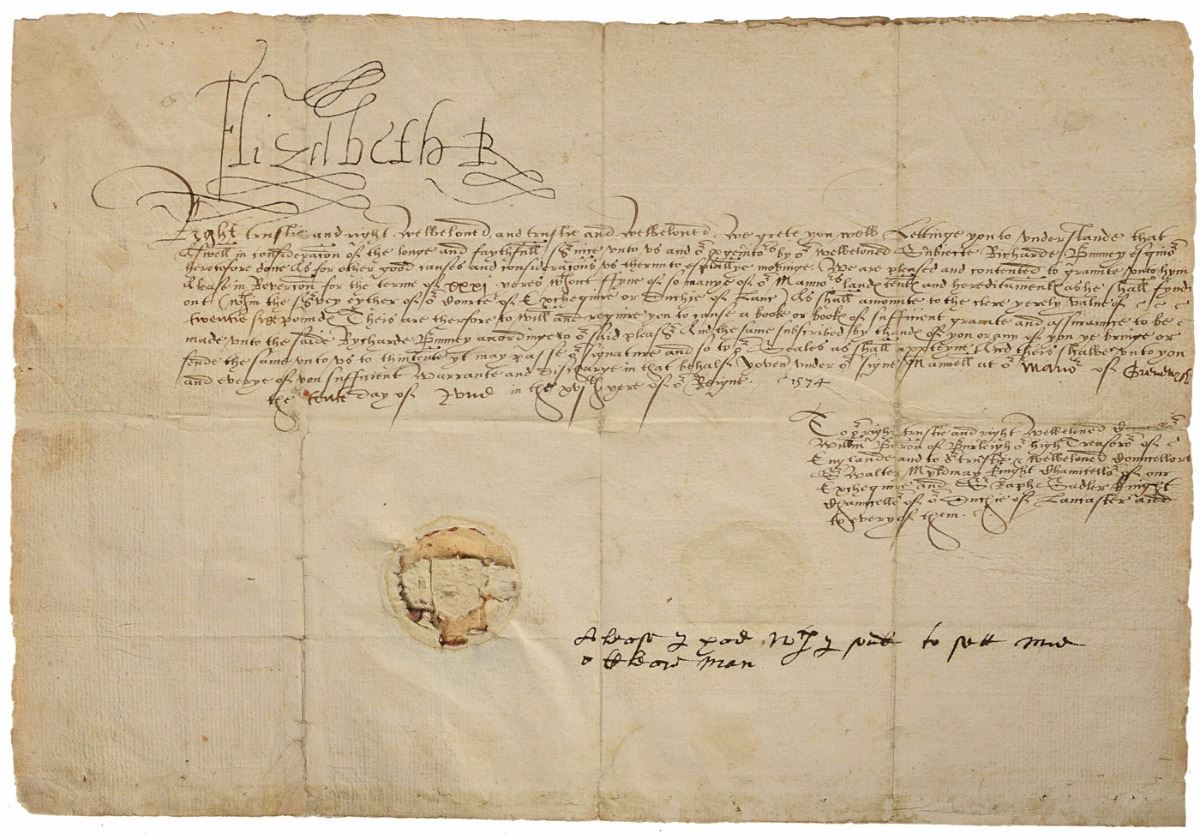 Elizabeth R
Right trustie and right welbeloved, and trustie and welbeloved. We grete you well Lettinge you to understande that
Aswell in consideracion of the longe and faythfull Svice unto us and oʳ pgenitoʳs by oʳ welbeloved Subiecte Richarde esquier
heretofore done As for other good causes and consideracions us thereunto espially movinge. We are pleased and contented to graunte unto hym
A lease in Revercion for the terme of XXXI yeres wᵗʰout ffyne of so manye of oʳ Mannoʳs landes tentes and hereditamentes as he shall fynde
out wᵗʰin the Svey eyther of oʳ Courte of Exchequire or Duchie of Lanc As shall amounte to the clere yerely value of
twentie syx pounde Theis are therfore to will and require you to cause a booke or bookes of sufficient graunte and assurance to be
made unto the saide Rycharde accordinge to oʳ said pleasʳ And the same subscribed by thande of you or any of you ye bringe or
sende the same unto us to thintente yt may passe oʳ signature and so to oʳ Seales as shall apperteyne. And theis shalbe unto you
and everye of you sufficient Warrante and Discharge in that behalf. Yoven under oʳ Signet at Mannell at oʳ Manoʳ of
the day of in the xvjᵗʰ yere of oʳ Reigne. 1574
To oʳ right trustie and right welbeloved
Willm Baron of Burleigh oʳ high Treasoʳ of
Englande and to oʳ trustie & welbeloved Councellors
Sʳ Walter Myldmay Knight Chauncelloʳ of our
Exchequire and Sʳ Raphe Sadler Knight
Chauncelloʳ of oʳ Duchie of Lancaster and
to every of them.
A lease to sett
man